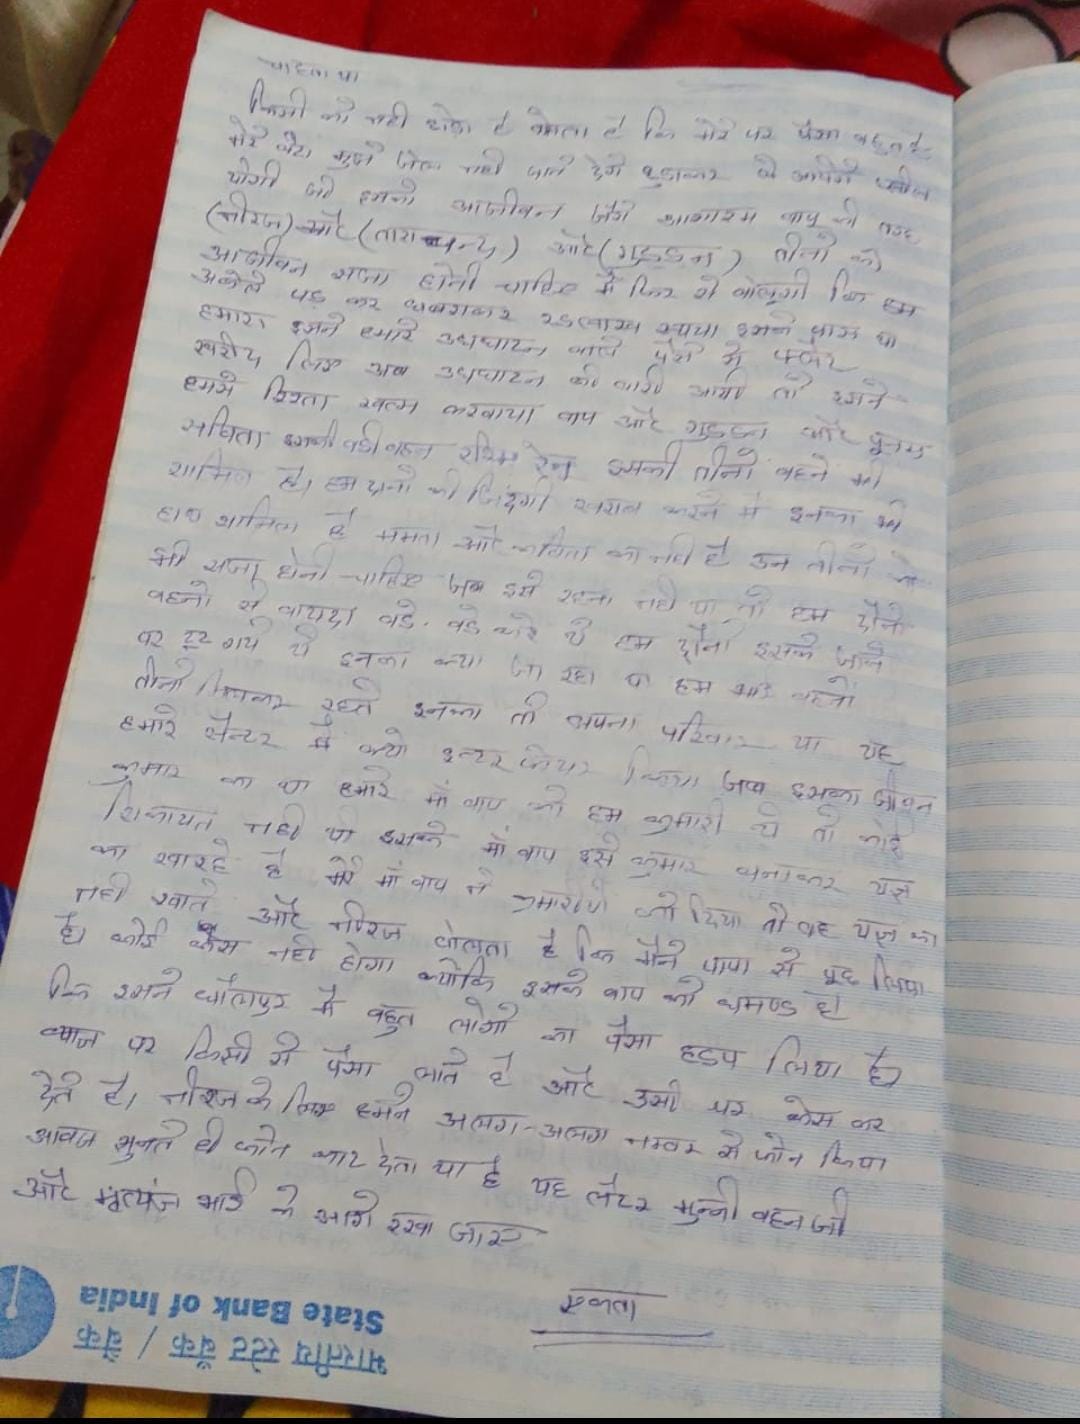 चाहता था
किसी को नही छोड़ा है बोलता है कि मेरे पर पैसा बहुत है
मेरे बेटा मुझे जेल नही जाने देगे छुड़ाकर ले आयेगे
योगी जी इनको आजीवन जैसे आशाराम बापू की तरह
(नीरज) और (ताराचन्द) और (गुड्डन) तीनो को
आजीवन सजा होनी चाहिए मैं फिर से बोलूगी कि हम
अकेले पड़ कर लाख रुपया इसके पास था
हमारा इसने हमारे उदघाटन वाले पैसे से प्लॉट
खरीद लिए अब उदघाटन की बारी आयी तो इसने
हमसे रिश्ता खत्म करवाया बाप और गुड्डन और पूनम
इसकी बडी बहन इसकी तीनो बहने भी
शामिल है। हम दोनो की जिंदगी खराब करने में इनका भी
हाथ शामिल है ममता और कविता का नही है उन तीनो को
भी सजा होनी चाहिए जब इसे रहना नही था तो हम दोनो
बहनो से वायदा बडे-बडे करे थे हम दोनो इसके जाने
पर टूट गये थे इनका क्या जा रहा था हम भाई बहनो
तीनो मिलकर रहते इनका तो अपना परिवार था यह
हमारे सेन्टर में क्यो इन्टर फेयर किया जब इसका जीवन
कुमार का था हमारे माँ बाप को हम कुमारी थे तो कोई
शिकायत नही थी इसके माँ बाप इसे कुमार बनाकर यज्ञ
का खा रहे है मेरे माँ बाप ने कुमारीयो को दिया तो वह यज्ञ का
नही खाते और नीरज बोलता है कि मैने पापा से पूछ लिया
है। कोई केस नही होगा क्योकि इसके बाप को घमण्ड है
कि इसने धौलपुर में बहुत लोगो का पैसा हडप लिया है।
ब्याज पर किसी से पैसा लाते है और उसी पर केस कर
देते है। नीरज के लिए हमने अलग-अलग नम्बर से फोन किया
आवाज सुनते ही फोन काट देता था है यह लैटर मुन्नी बहन जी
और मृत्युंजय भाई के आगे रखा जाए
एकता
भारतीय स्टेट बैंक / बैंक
State Bank of India